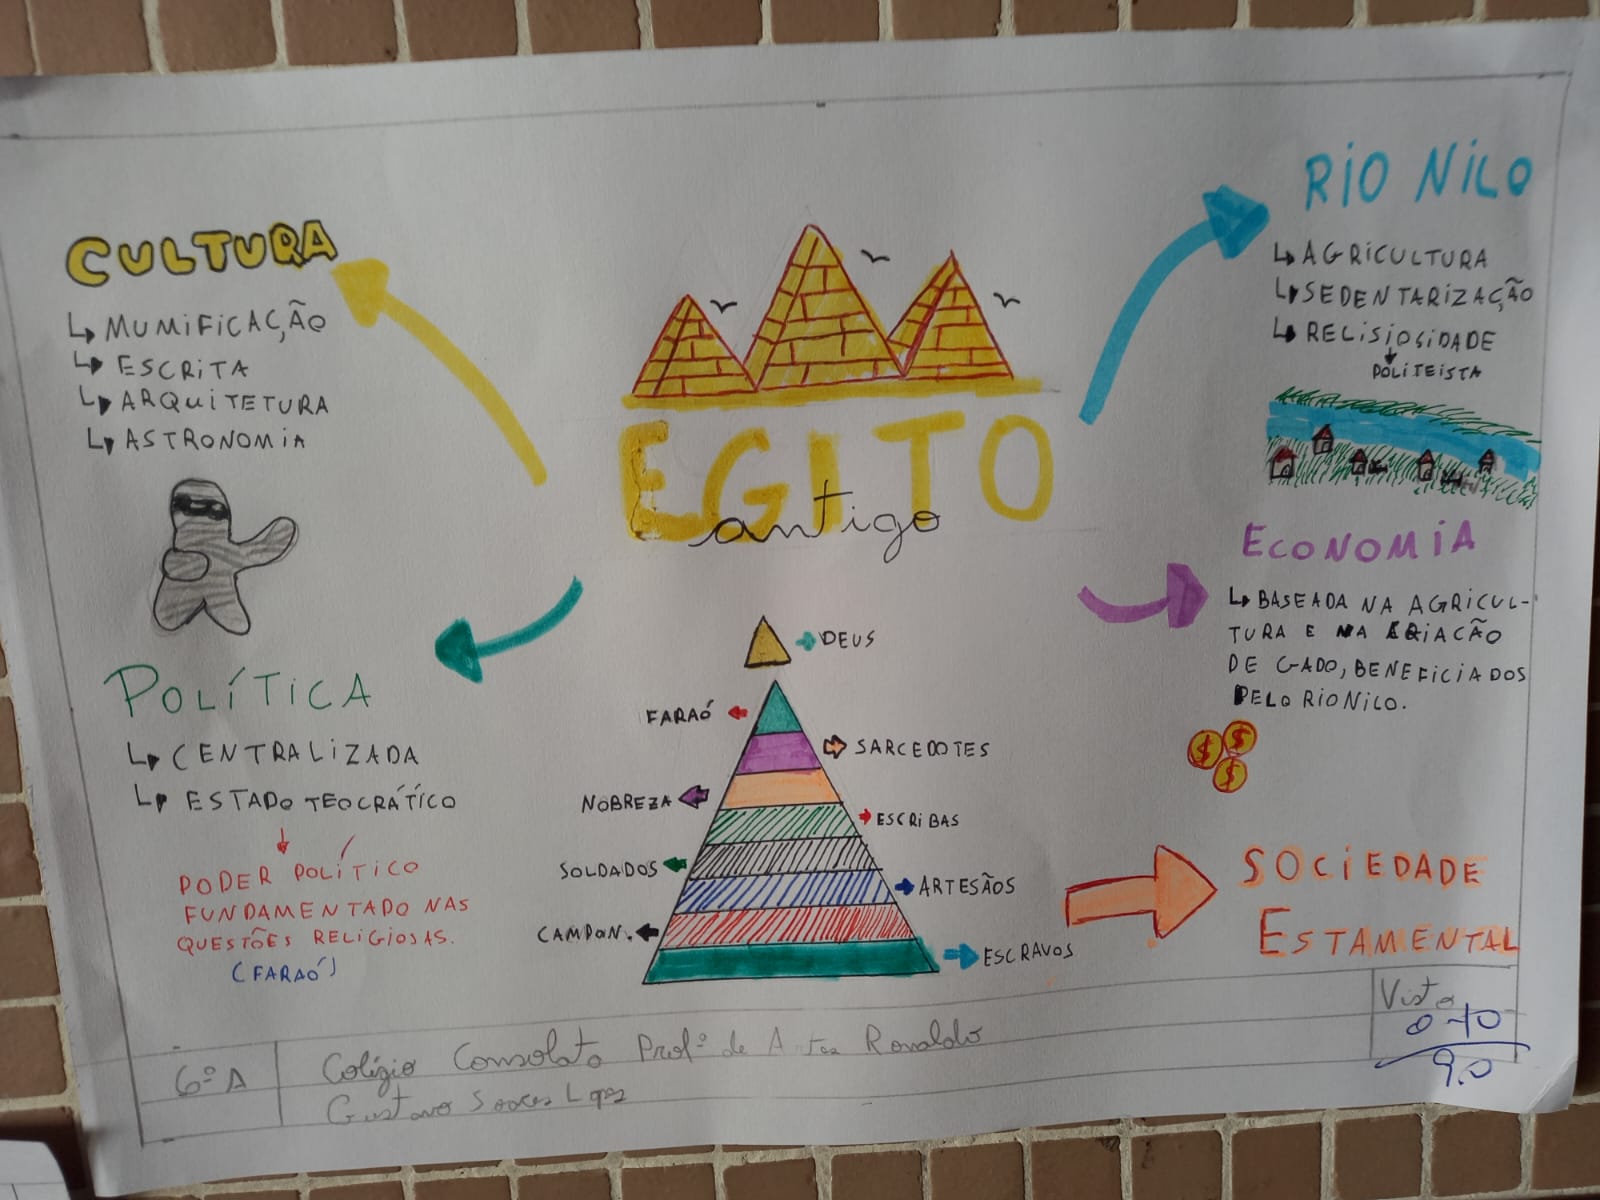 CULTURA
↳ MUMIFICAÇÃO
↳ ESCRITA
↳ ARQUITETURA
↳ ASTRONOMIA
EGITO
antigo
RIO NILO
↳ AGRICULTURA
↳ SEDENTARIZAÇÃO
↳ RELISIOSIDADE
POLITEISTA
ECONOMIA
↳ BASEADA NA AGRICUL-
TURA E NA CRIACÃO
DE GADO, BENEFICIADOS
PELO RIO NILO.
$ $
$
POLÍTICA
↳ CENTRALIZADA
↳ ESTADO TEOCRÁTÍCO
PODER POLÍTICO
FUNDAMENTADO NAS
QUESTÕES RELIGIOSAS.
(FARAÓ)
DEUS
FARAÓ
SARCEDOTES
NOBREZA
ESCRIBAS
SOLDADOS
ARTESÃOS
CAMPON.
ESCRAVOS
SOCIEDADE
ESTAMENTAL
6º A
Colégio Consolata Profº de Artes Ronaldo
Gustavo Soares Lopes
Visto
0-10
9.0